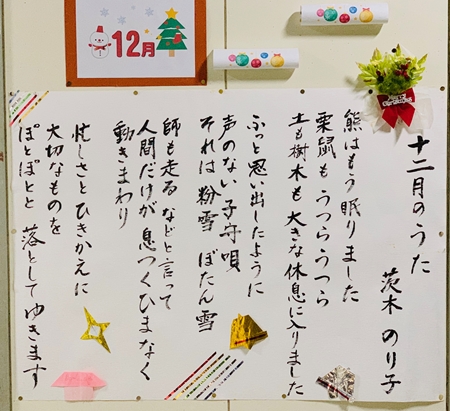 12月
十二月のうた
茨木 のり子
熊はもう眠りました
栗鼠も うつらうつら
土も樹木も大きな休息に入りました
ふっと 思い出したように
声のない 子守唄
それは 粉雪 ぼたん雪
師も走る などと 言って
人間だけが 息つくひまなく
動きまわり
忙しさと ひきかえに
大切なものを
ぽとぽとと 落としてゆきます